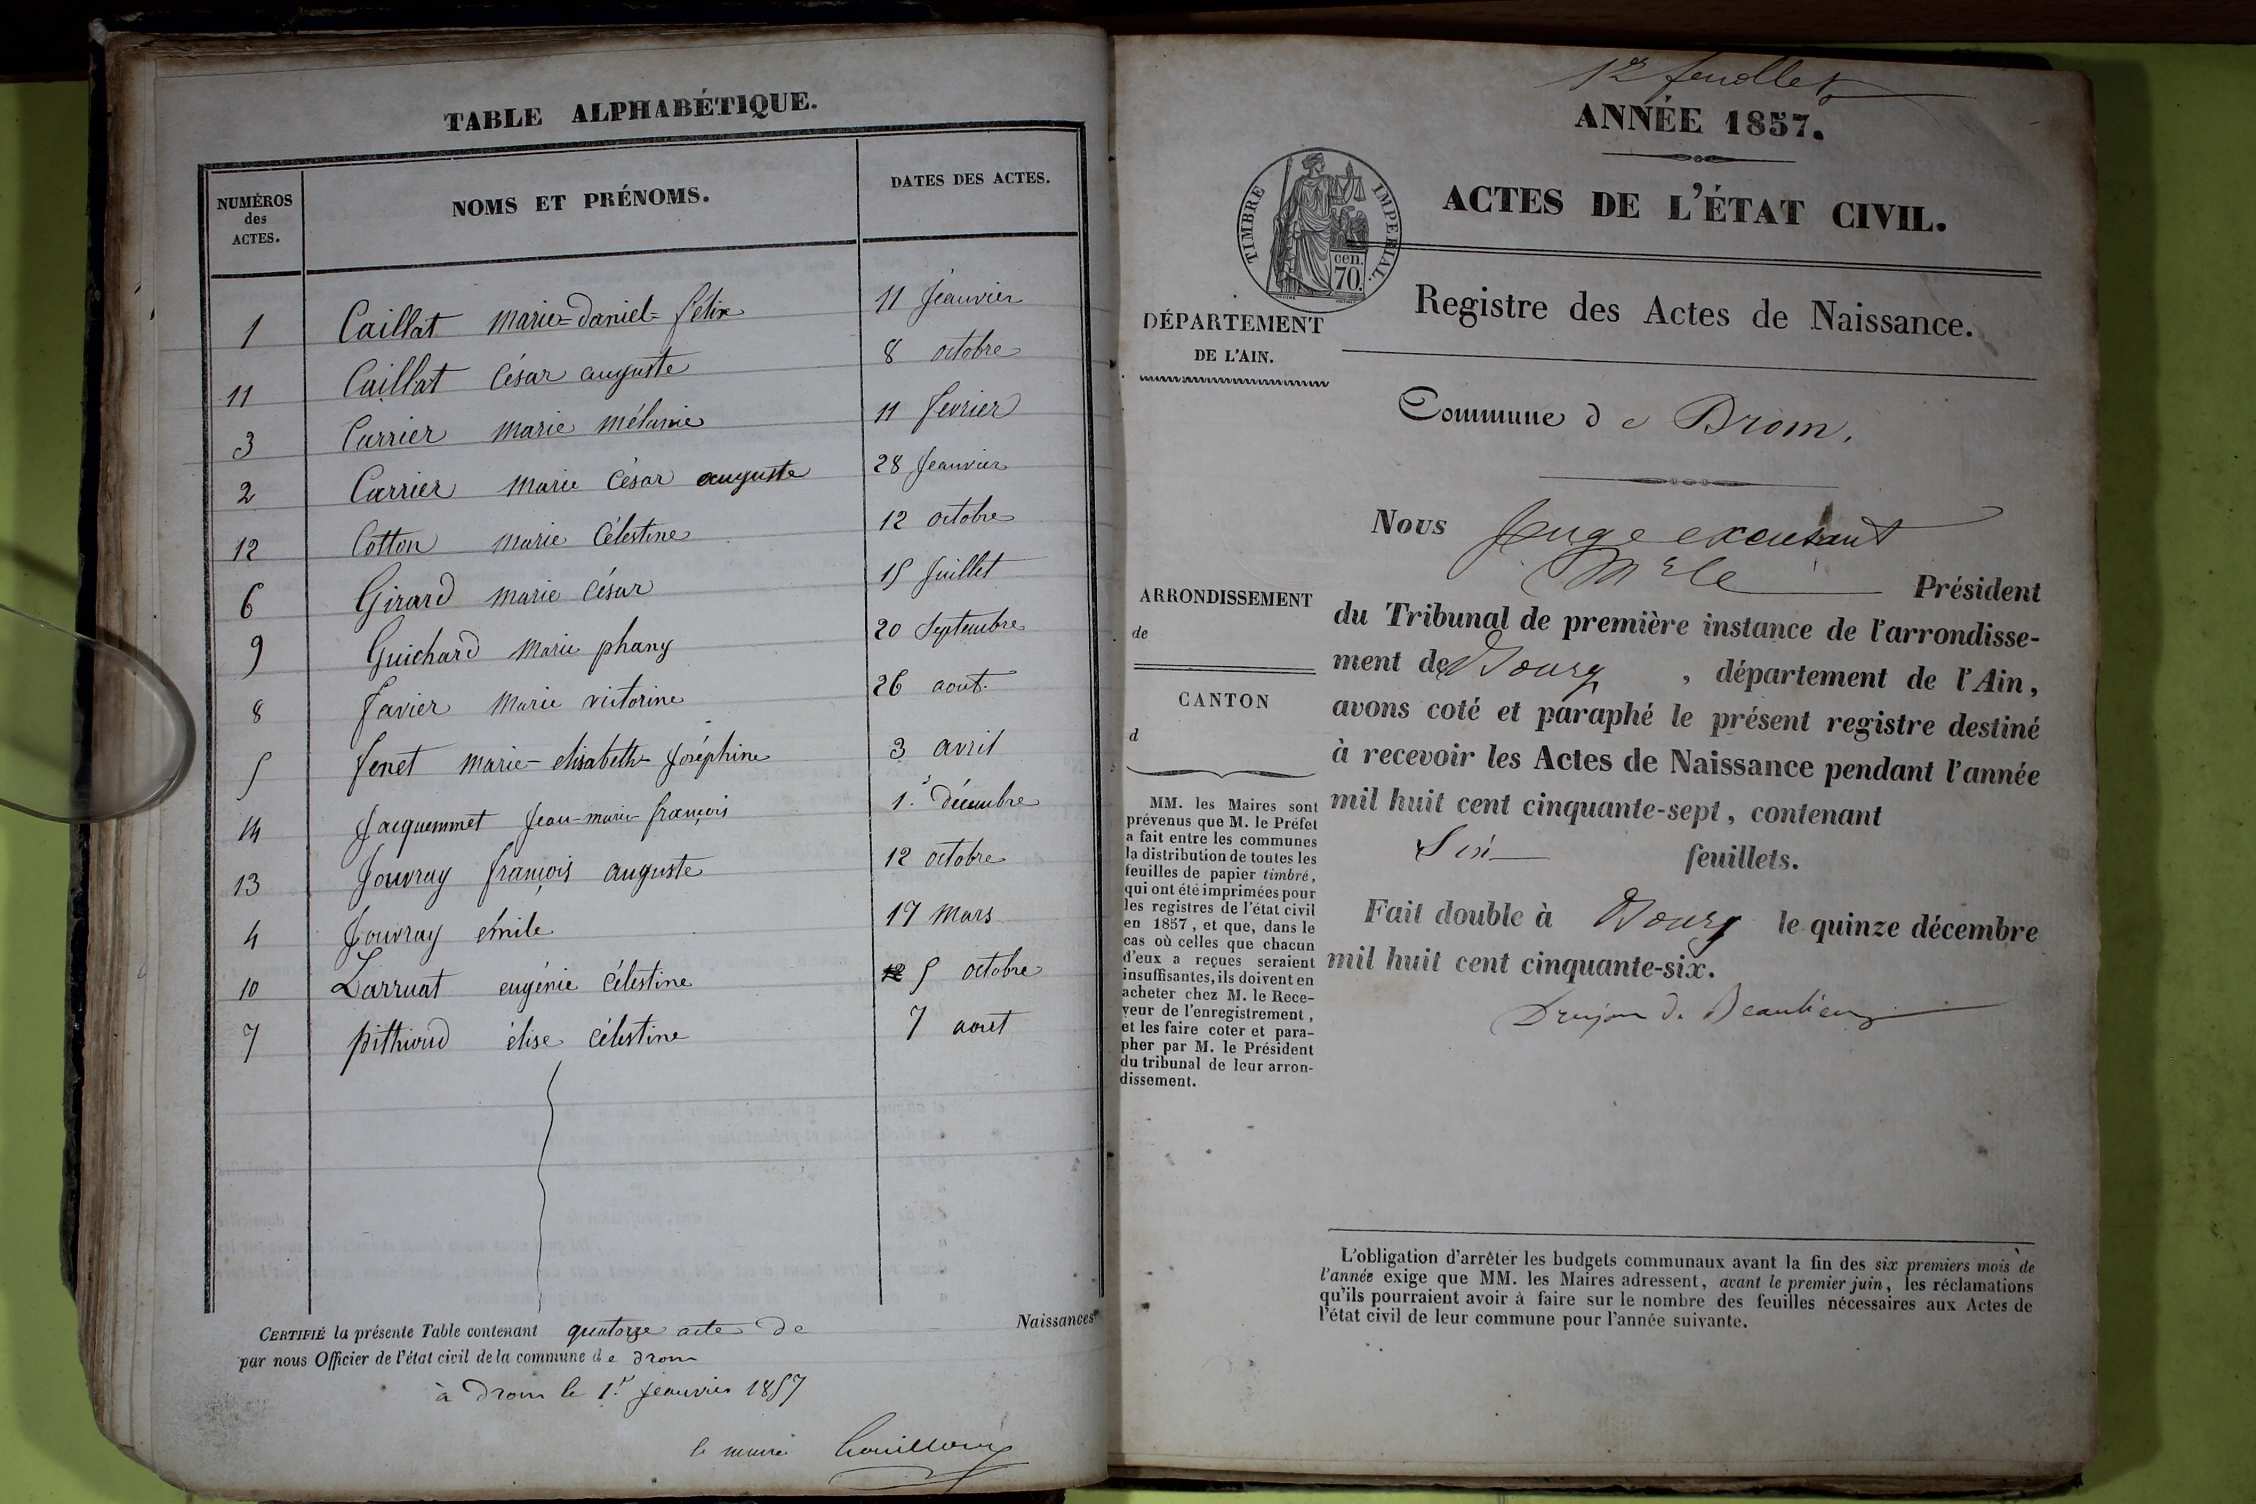 TABLE ALPHABÉTIQUE.
NUMÉROS
des
ACTES.
NOMS ET PRÉNOMS.
DATES DES ACTES.
1 Caillat marie=daniel=félix 11 Jeanvier
11 Caillat César auguste 8 octobre
3 Carrier marie mélanie 11 fevrier
2 Carrier marie César auguste 28 Jeanvier
12 Cotton marie Célestine 12 octobre
6 Girard marie César 15 Juillet
9 Guichard marie phany 20 Septembre
8 Javier marie victorine 26 aout.
5 Jenet marie-elisabeth Joséphine 3 avril
14 Jacquemmet Jean-marie-françois 1. décembre
13 Jouvray françois auguste 12 octobre
4 Jouvray émile 17 mars
10 Larruat eugénie Célestine 5 octobre
7 pithioud élise Célestine 7 aout
CERTIFIÉ la présente Table contenant quatorze acte de Naissances
par nous Officier de l'état civil de la commune de drom
à Drom le 1.r Jeanvier 1857
le maire
1er feuillet
ANNÉE 1857.
TIMBRE IMPERIAL.
cen.
70.
ACTES DE L'ÉTAT CIVIL.
Registre des Actes de Naissance.
DÉPARTEMENT
DE L'AIN.
Commune de Drom.
ARRONDISSEMENT
de
CANTON
d
MM. les Maires sont
prévenus que M. le Préfet
a fait entre les communes
la distribution de toutes les
feuilles de papier timbré,
qui ont été imprimées pour
les registres de l'état civil
en 1857, et que, dans le
cas où celles que chacun
d'eux a reçues seraient
insuffisantes, ils doivent en
acheter chez M. le Rece-
veur de l'enregistrement,
et les faire coter et para-
pher par M. le Président
du tribunal de leur arron-
dissement.
Nous Juge
Président
du Tribunal de première instance de l'arrondisse-
ment de Bourg, département de l'Ain,
avons coté et paraphé le présent registre destiné
à recevoir les Actes de Naissance pendant l'année
mil huit cent cinquante-sept, contenant
Six feuillets.
Fait double à Bourg le quinze décembre
mil huit cent cinquante-six.
Drujon de Beaulieu
L'obligation d'arrêter les budgets communaux avant la fin des six premiers mois de
l'année exige que MM. les Maires adressent, avant le premier juin, les réclamations
qu'ils pourraient avoir à faire sur le nombre des feuilles nécessaires aux Actes de
l'état civil de leur commune pour l'année suivante.